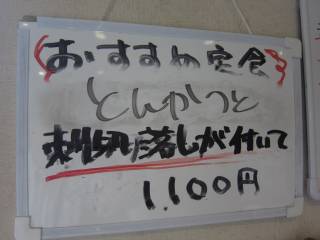 おすすめ定食
とんかつと
刺切り落しが付いて
1,100円